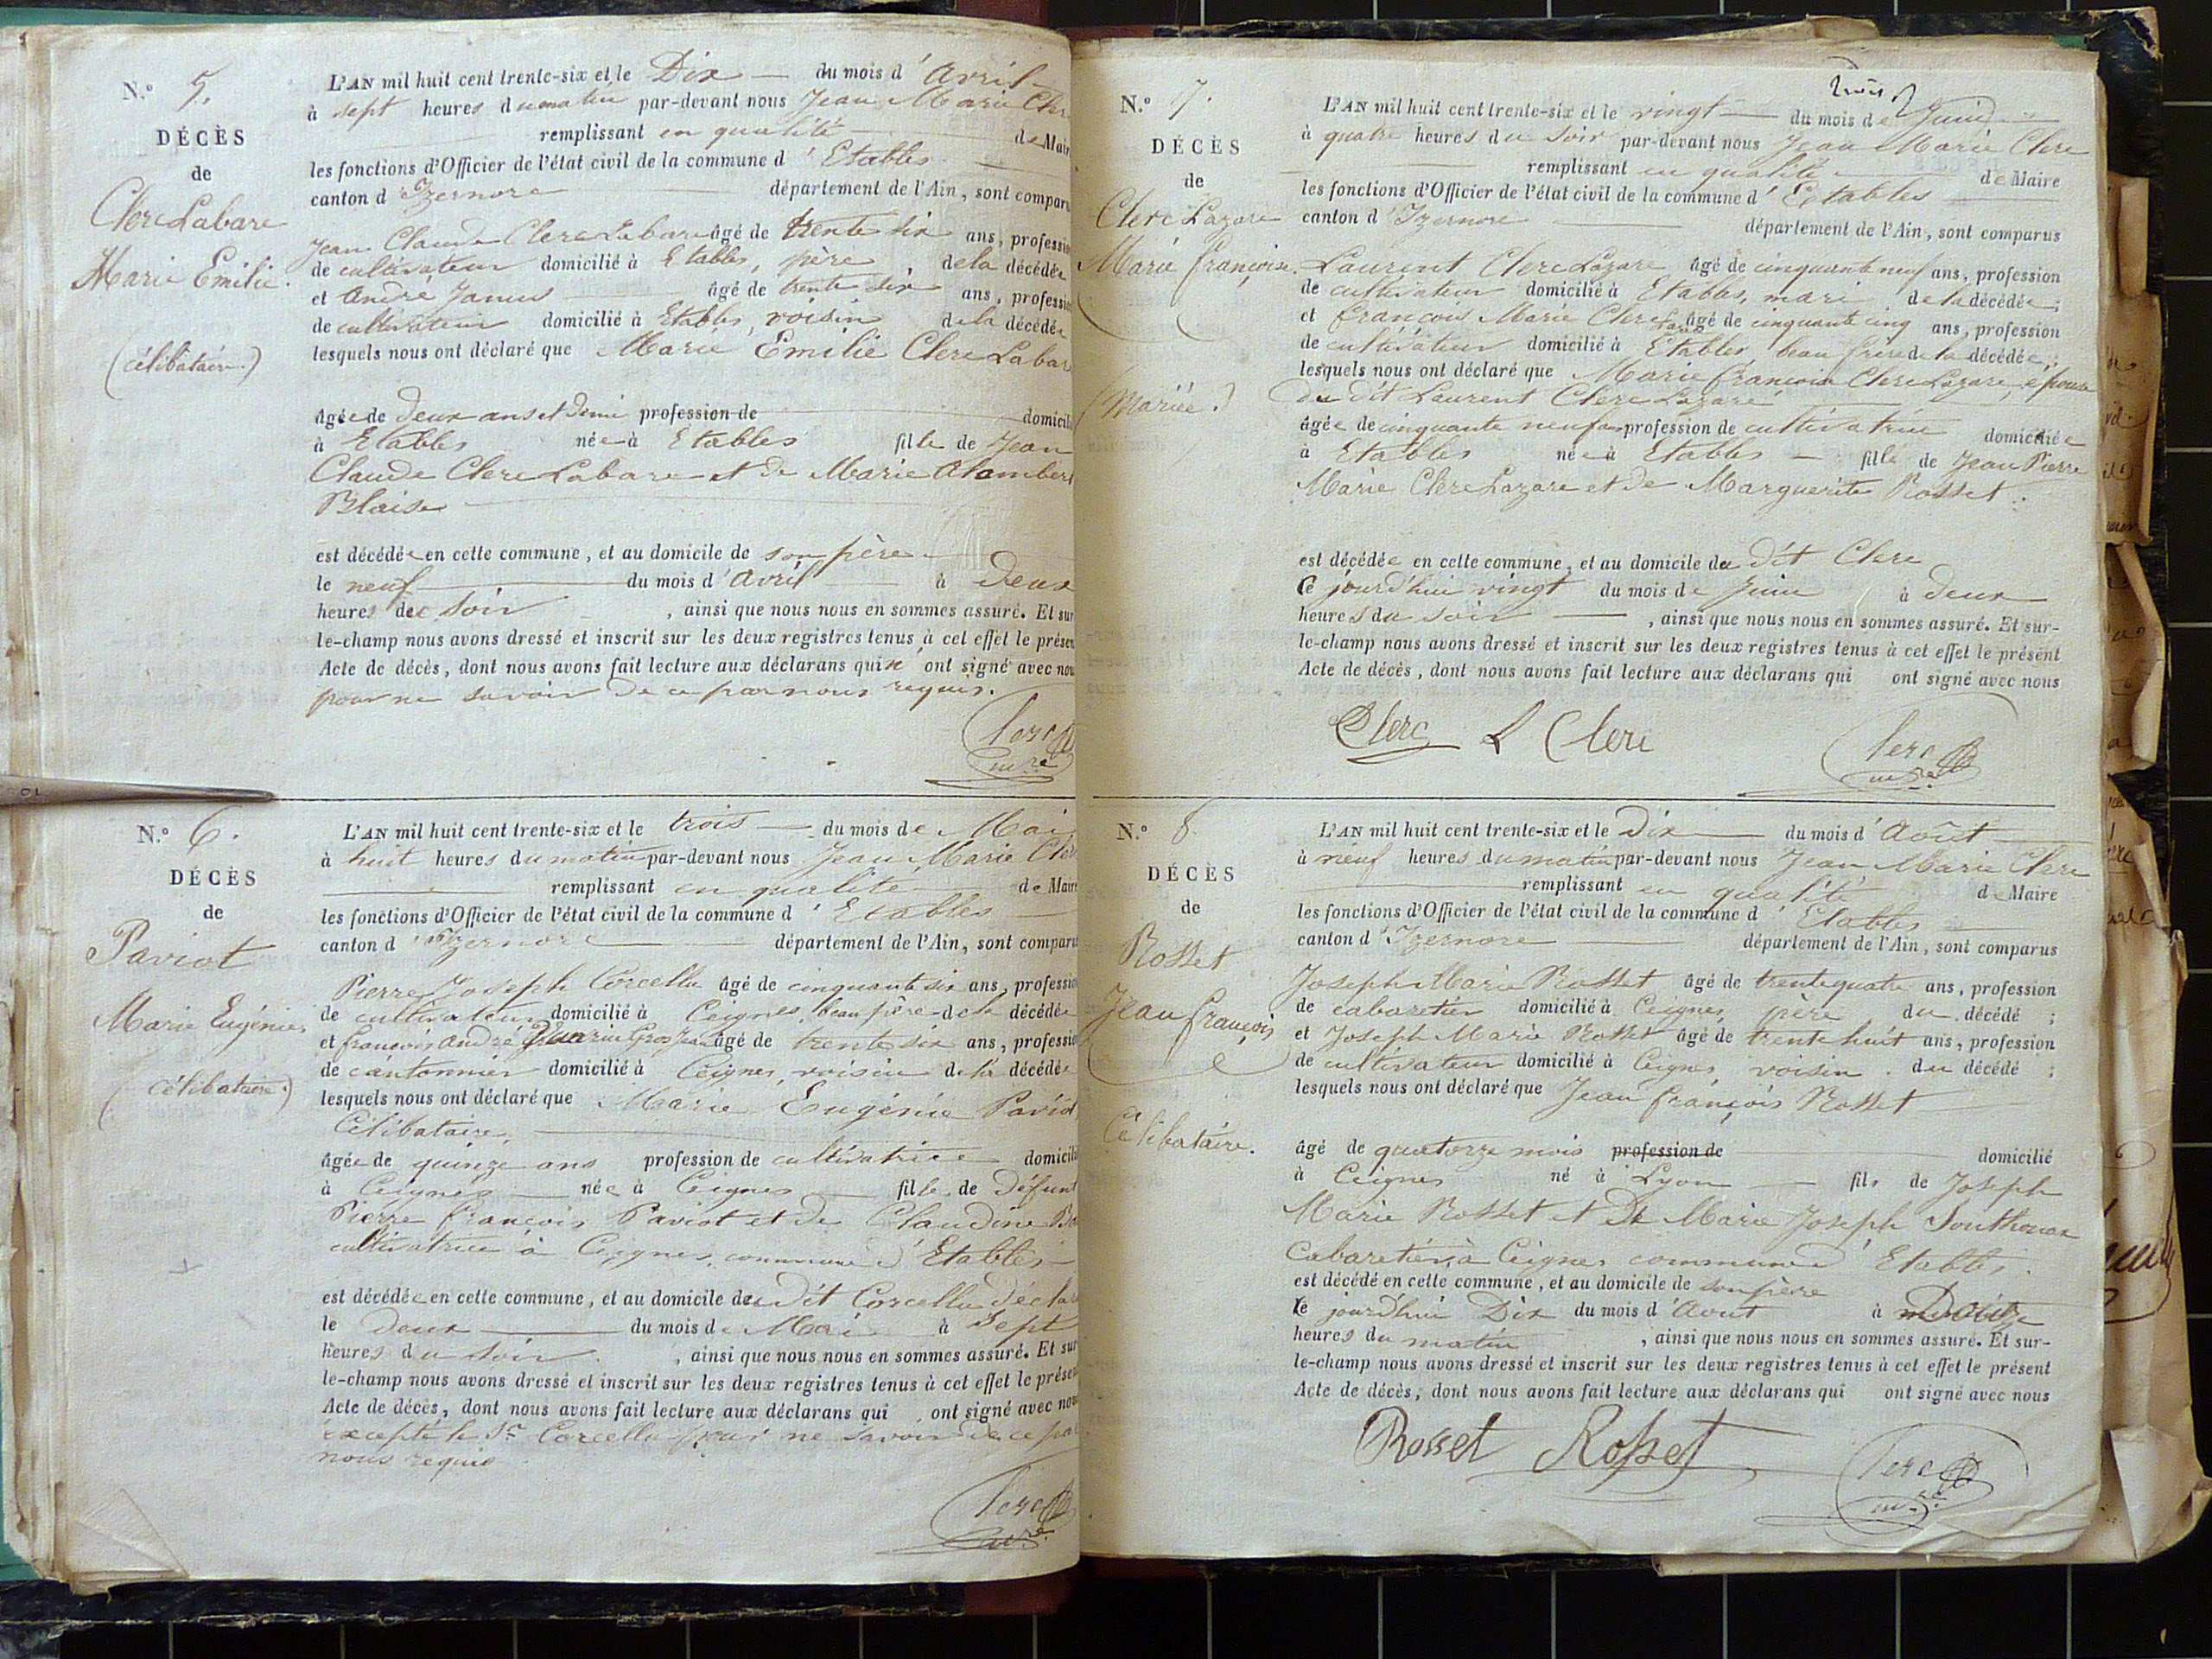 N.° 5.
DÉCÈS
de
Clerc Labare
Marie Emilie.
(célibataire.)
L'AN mil huit cent trente-six et le Dix du mois d'Avril
à sept heures du matin par-devant nous Jean Marie Cler
remplissant en qualité de Mair
les fonctions d'Officier de l'état civil de la commune d'Etables
canton d'Izernore département de l'Ain, sont comparu
Jean Claude Clerc Labare âgé de trente six ans, professio
de cultivateur domicilié à Etables, père de la décédée
et André Janus âgé de trente six ans, professio
de cultivateur domicilié à Etables, voisin de la décédée
lesquels nous ont déclaré que Marie Emilie Clerc Labar
âgée de deux ans et demi profession de domicil
à Etables née à Etables fille de Jean
Claude Clerc Labare et de Marie Alombert
Blaise
est décédée en cette commune, et au domicile de son père
le neuf du mois d'Avril à Deux
heures de soir, ainsi que nous nous en sommes assuré. Et sur
le-champ nous avons dressé et inscrit sur les deux registres tenus à cet effet le présen
Acte de décès, dont nous avons fait lecture aux déclarans qui n'ont signé avec nou
pour ne savoir de ce par nous requis.
Clerc
mre
N.° 6.
DÉCÈS
de
Paviot
Marie Eugénie,
(célibataire.)
L'AN mil huit cent trente-six et le trois du mois de Mai
à huit heures du matin par-devant nous Jean Marie Cler
remplissant en qualité de Maire
les fonctions d'Officier de l'état civil de la commune d'Etables
canton d'Izernore département de l'Ain, sont comparu
Pierre Joseph Corcellu âgé de cinquante six ans, professio
de cultivateur domicilié à Ceignes, beau père de la décédée
et françois André Gros Jean âgé de trente six ans, professio
de cantonnier domicilié à Ceignes, voisin de la décédée
lesquels nous ont déclaré que Marie Eugénie Paviot
Célibataire,
âgée de quinze ans profession de cultivatrice domicili
à Ceignes née à Ceignes fille de Défunt
Pierre françois Paviot et de Claudine
cultivatrice à Ceignes, commune d'Etables
est décédée en cette commune, et au domicile du dit Corcellu déclar
le deux du mois de Mai à sept
heures du soir, ainsi que nous nous en sommes assuré. Et sur
le-champ nous avons dressé et inscrit sur les deux registres tenus à cet effet le présen
Acte de décès, dont nous avons fait lecture aux déclarans qui ont signé avec nou
excepté le Sr Corcellu pour ne savoir de ce par
nous requis
Clerc
mre
N.° 7.
DÉCÈS
de
Clerc Lazare
Marie françoise.
(Mariée.)
L'AN mil huit cent trente-six et le vingt du mois de Juin
à quatre heures du soir par-devant nous Jean Marie Clerc
remplissant en qualité de Maire
les fonctions d'Officier de l'état civil de la commune d'Etables
canton d'Izernore département de l'Ain, sont comparus
Laurent Clerc Lazare âgé de cinquante neuf ans, profession
de cultivateur domicilié à Etables, mari de la décédée;
et françois Marie Clerc Lazare âgé de cinquante cinq ans, profession
de cultivateur domicilié à Etables, beau frère de la décédée;
lesquels nous ont déclaré que Marie françoise Clerc Lazare, épouse
du dit Laurent Clerc Lazare
âgée de cinquante neuf ans profession de cultivatrice domiciliée
à Etables née à Etables fille de Jean Pierre
Marie Clerc Lazare et de Marguerite Rosset.
est décédée en cette commune, et au domicile du dit Clerc
le jourd'hui vingt du mois de Juin à deux
heures du soir, ainsi que nous nous en sommes assuré. Et sur-
le-champ nous avons dressé et inscrit sur les deux registres tenus à cet effet le présent
Acte de décès, dont nous avons fait lecture aux déclarans qui ont signé avec nous
Clerc L Clerc
Clerc
mre
N.° 8.
DÉCÈS
de
Rosset
Jean françois
Célibataire.
L'AN mil huit cent trente-six et le Dix du mois d'Août
à neuf heures du matin par-devant nous Jean Marie Clerc
remplissant en qualité de Maire
les fonctions d'Officier de l'état civil de la commune d'Etables
canton d'Izernore département de l'Ain, sont comparus
Joseph Marie Rosset âgé de trente quatre ans, profession
de cabaretier domicilié à Ceignes, père du décédé;
et Joseph Marie Rosset âgé de trente huit ans, profession
de cultivateur domicilié à Ceignes, voisin du décédé;
lesquels nous ont déclaré que Jean françois Rosset
âgé de quatorze mois profession de domicilié
à Ceignes né à Lyon fils de Joseph
Marie Rosset et De Marie Joseph Southonax
Cabaretiers, à Ceignes commune d'Etables.
est décédé en cette commune, et au domicile de son père
le jourd'hui Dix du mois d'Aout à
heures du matin, ainsi que nous nous en sommes assuré. Et sur-
le-champ nous avons dressé et inscrit sur les deux registres tenus à cet effet le présent
Acte de décès, dont nous avons fait lecture aux déclarans qui ont signé avec nous
Rosset Rosset
Clerc
mre